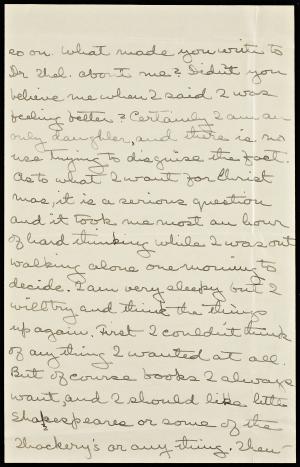 so on. What made you write to
Dr Thel. about me? Didn't you
believe me when I said I was
feeling better? Certainly I am an
only daughter, and there is no
use trying to disguise the fact.
As to what I want for Christ
mas, it is a serious question
and it took me most an hour
of hard thinking while I was out
walking alone one morning to
decide. I am very sleepy but I
will try and think the things
up again. First I couldn't think
of any thing I wanted at all.
But of course books I always
want, and I should like little
Shakespeares or some of the
Thackery's or any thing. Then